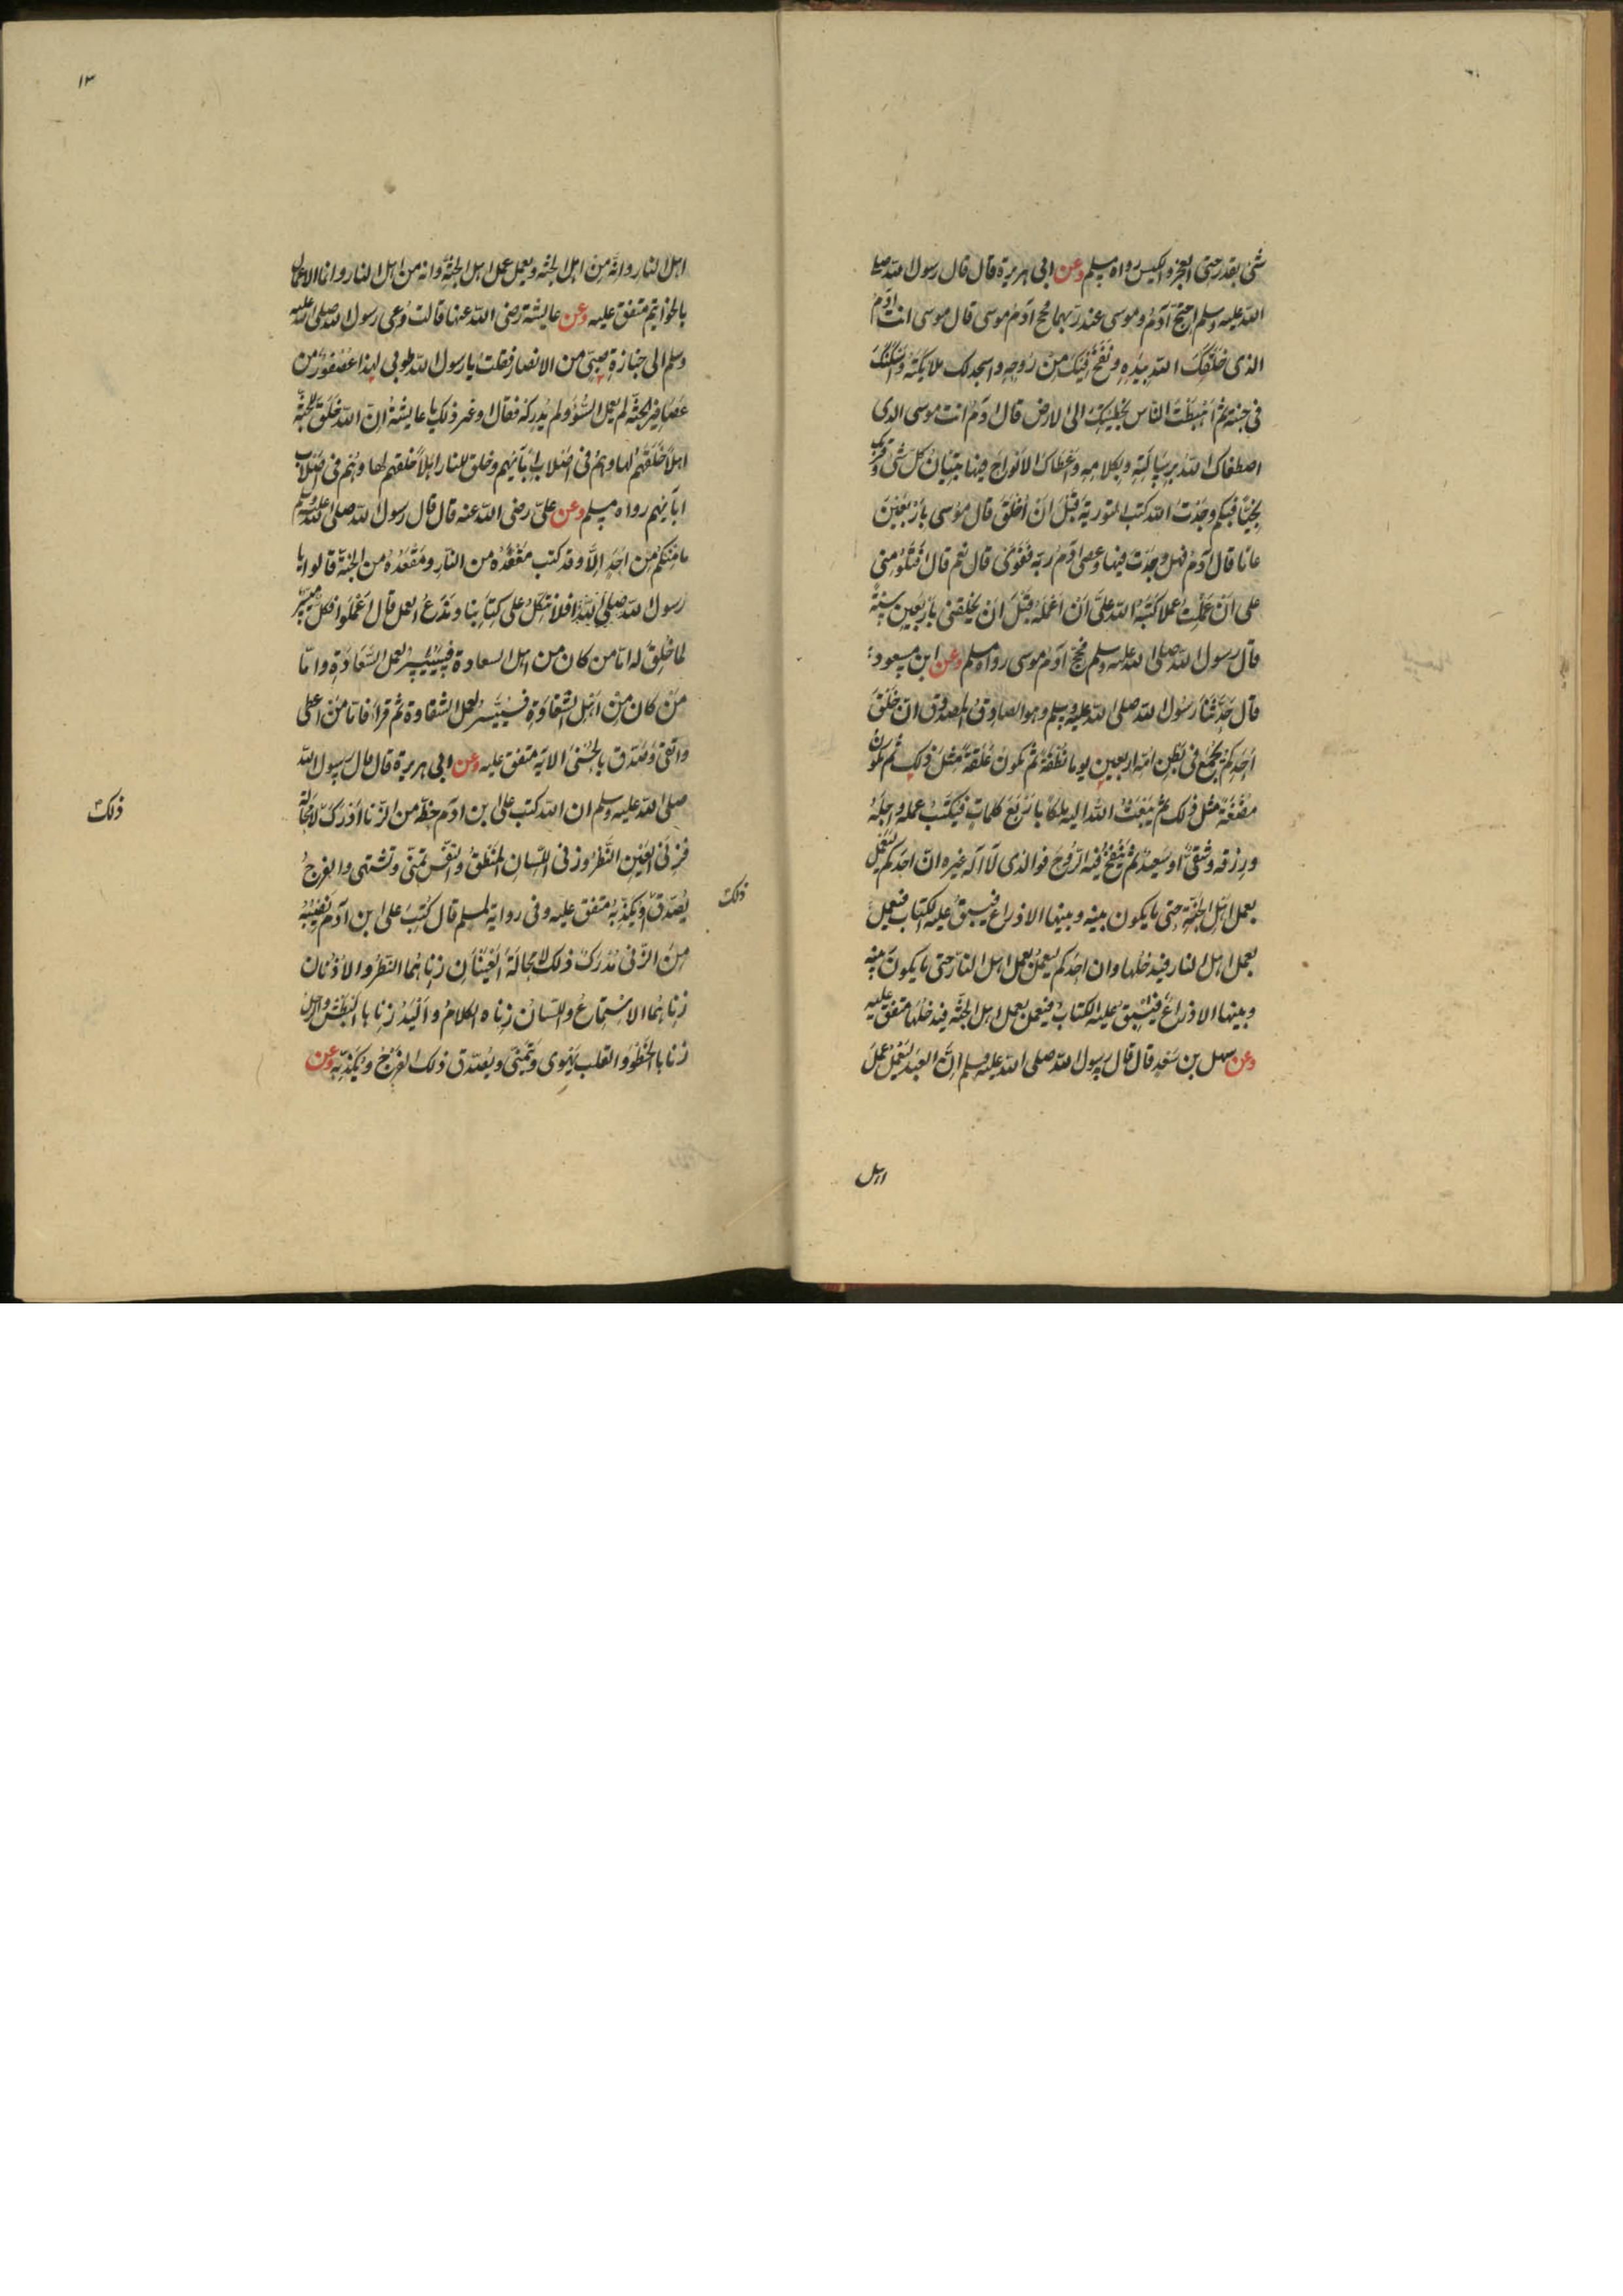 شئ بقدر حتى العجز والكيس رواه مسلم وعن ابى هريرة قال قال رسول الله صلى
الله عليه وسلم احتج آدم وموسى عند ربهما فحج آدم موسى قال موسى انت آدم
الذى خلقك الله بيده ونفخ فيك من روحه واسجد لك ملايكته واسكنك
فى جنته ثم اهبطت الناس بخطيئتك الى الارض قال آدم انت موسى الذى
اصطفاك الله برسالته وبكلامه واعطاك الالواح فيها تبيان كل شئ وقربك
نجيا فبكم وجدت الله كتب التورية قبل ان اخلق قال موسى باربعين
عاما قال آدم فهل وجدت فيها وعصى آدم ربه فغوى قال نعم قال افتلومنى
على ان عملت عملا كتبه الله على ان اعمله قبل ان يخلقنى باربعين سنة
قال رسول الله صلى الله عليه وسلم فحج آدم موسى رواه مسلم وعن ابن مسعود
قال حدثنا رسول الله صلى الله عليه وسلم وهو الصادق المصدوق ان خلق
احدكم يجمع فى بطن امه اربعين يوما نطفة ثم يكون علقة مثل ذلك ثم يكون
مضغة مثل ذلك ثم يبعث الله اليه ملكا باربع كلمات فيكتب عمله واجله
ورزقه وشقى او سعيد ثم ينفخ فيه الروح فوالذى لا اله غيره ان احدكم ليعمل
بعمل اهل الجنة حتى ما يكون بينه وبينها الا ذراع فيسبق عليه الكتاب فيعمل
بعمل اهل النار فيدخلها وان احدكم ليعمل بعمل اهل النار حتى ما يكون بينه
وبينها الا ذراع فيسبق عليه الكتاب فيعمل بعمل اهل الجنة فيدخلها متفق عليه
وعن سهل بن سعد قال قال رسول الله صلى الله عليه وسلم ان العبد ليعمل عمل
اهل
١٣
اهل النار وانه من اهل الجنة ويعمل عمل اهل الجنة وانه من اهل النار وانما الاعمال
بالخواتيم متفق عليه وعن عايشة رضى الله عنها قالت دعى رسول الله صلى الله عليه
وسلم الى جنازة صبى من الانصار فقلت يا رسول الله طوبى لهذا عصفور من
عصافير الجنة لم يعمل السوء ولم يدركه فقال او غير ذلك يا عايشة ان الله خلق للجنة
اهلا خلقهم لها وهم فى اصلاب آبآئهم وخلق للنار اهلا خلقهم لها وهم فى اصلاب
ابآئهم رواه مسلم وعن على رضى الله عنه قال قال رسول الله صلى الله عليه وسلم
ما منكم من احد الا وقد كتب مقعده من النار ومقعده من الجنة قالوا يا
رسول الله صلى الله افلا نتكل على كتابنا وندع العمل قال اعملوا فكل ميسر
لما خلق له اما من كان من اهل السعادة فسييسر لعمل السعادة واما
من كان من اهل الشقاوة فسييسر لعمل الشقاوة ثم قرا فاما من اعطى
واتقى وصدق بالحسنى الاية متفق عليه وعن ابى هريرة قال قال رسول الله
صلى الله عليه وسلم ان الله كتب على ابن ادم حظه من الزنا ادرك لا محالة
ذلك
فزنى العين النظر وزنى اللسان المنطق والنفس تمنى وتشتهى والفرج
يصدق او يكذبه متفق عليه وفى رواية لمسلم قال كتب على ابن آدم نصيبه
ذلك
من الزنى مدرك ذلك لا محالة العينان زناهما النظر والاذنان
زناهما الاستماع واللسان زناه الكلام واليد زناها البطش والرجل
زناها الخطو والقلب يهوى ويتمنى ويصدق ذلك الفرج ويكذبه وعن